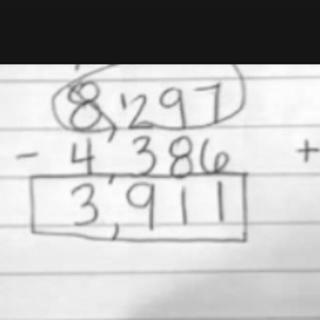 8,297
- 4,386 +
3,911